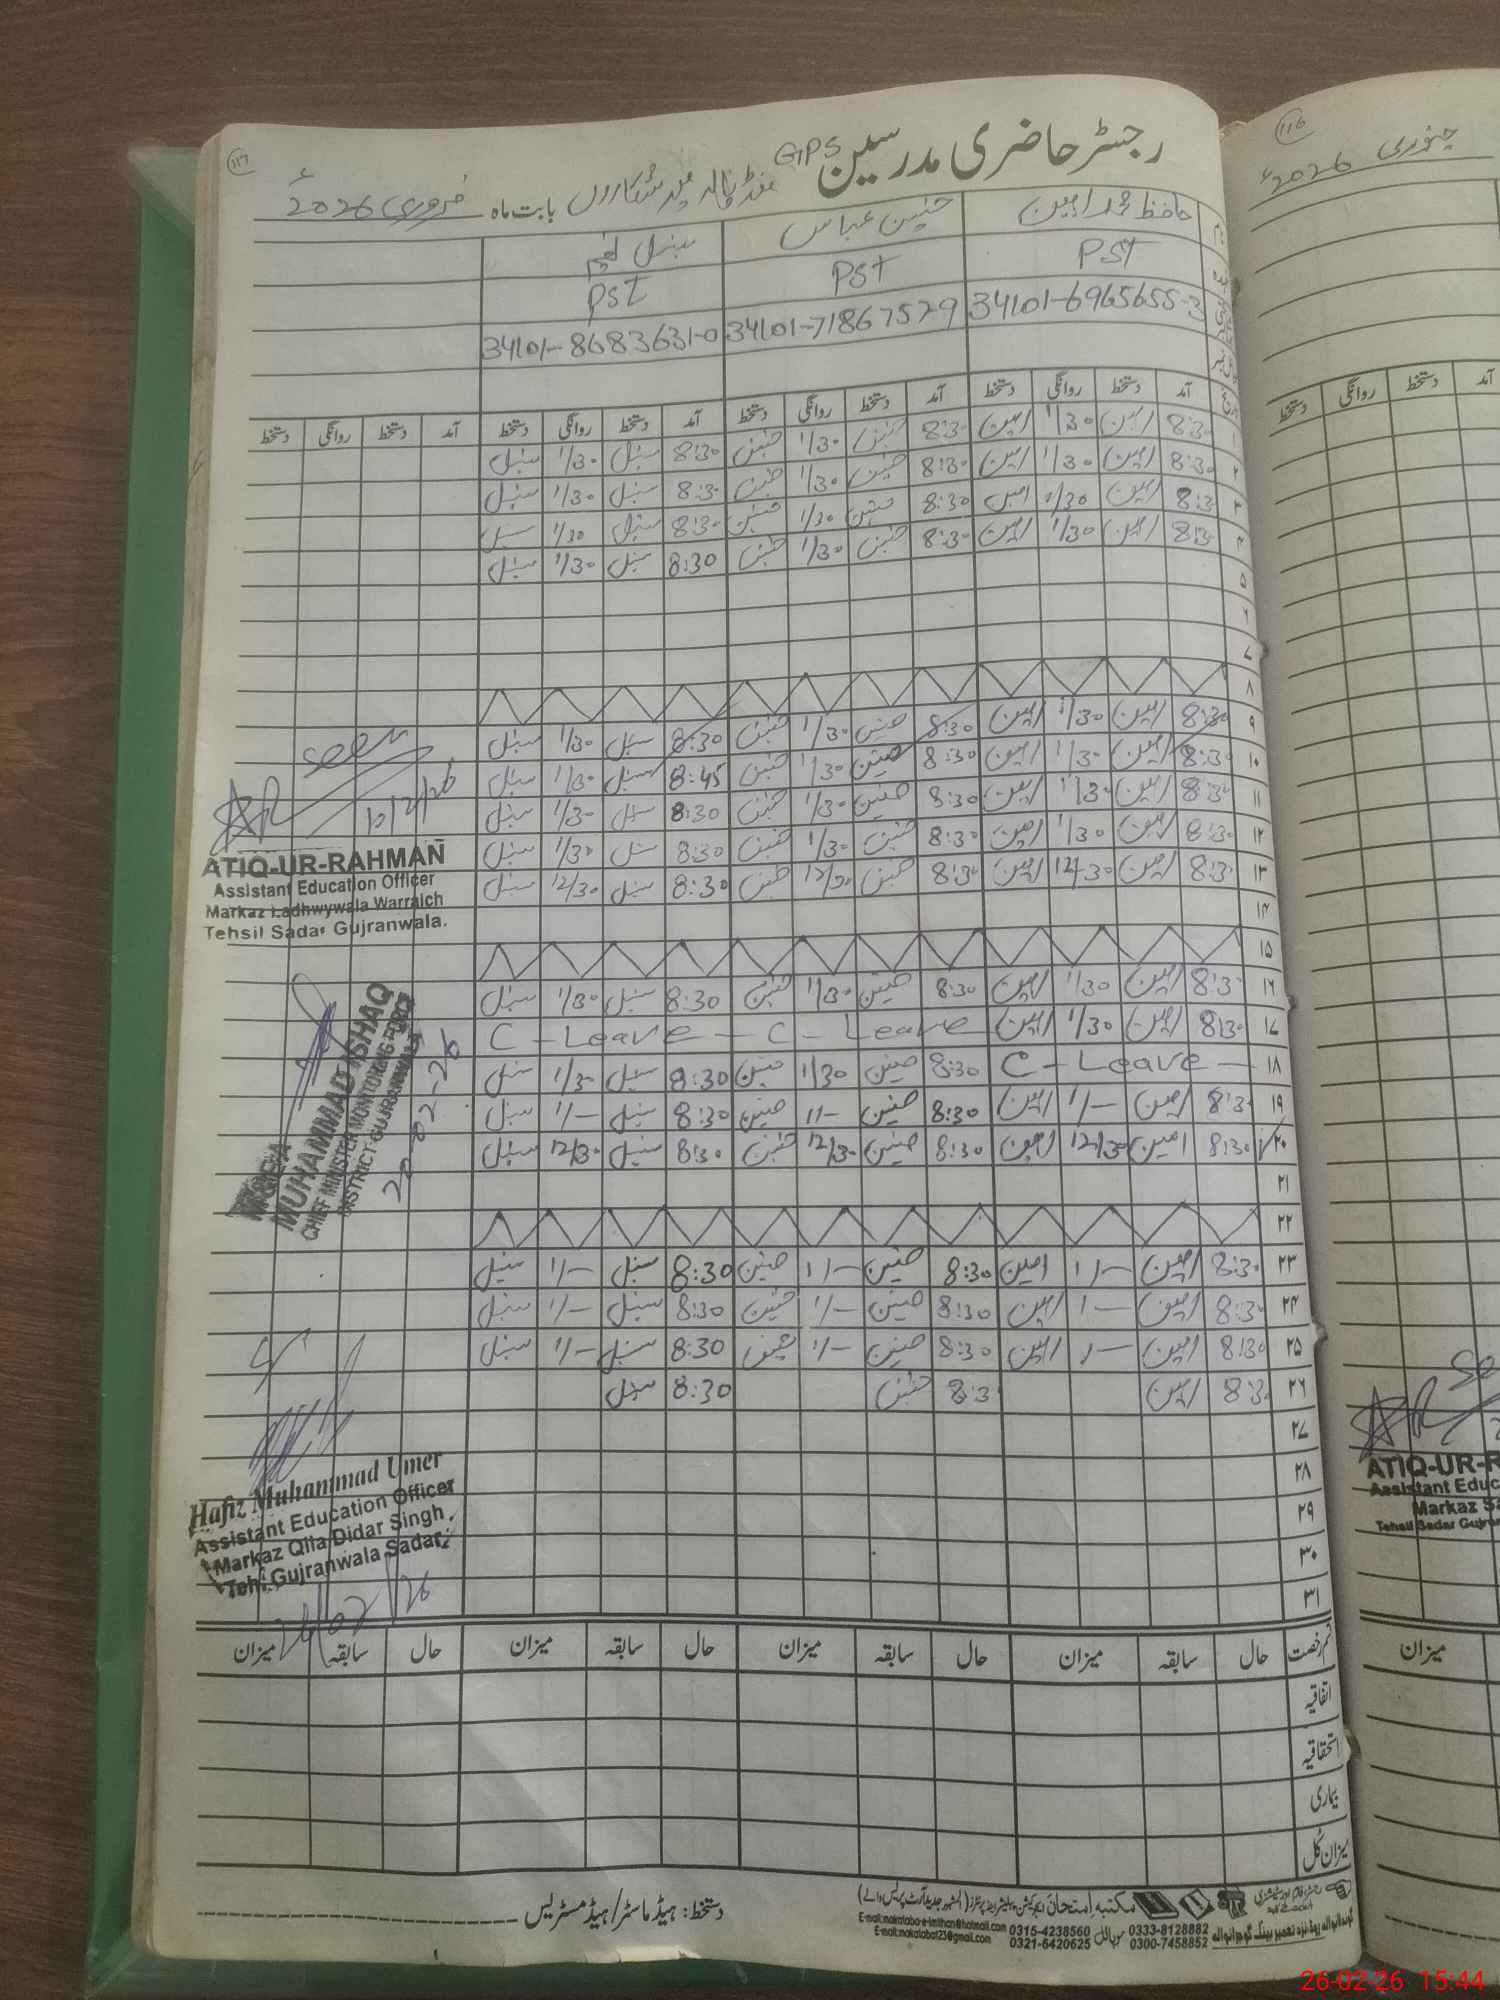 117
رجسٹر حاضری مدرسین GPS
بابت ماہ فروری 2026ء
حافظ محمد امین حسنین عباس سنبل نعیم
PST PST PST
34101-6965655-3 34101-7186752-9 34101-8683631-0
آمد دستخط روانگی دستخط آمد دستخط روانگی دستخط آمد دستخط روانگی دستخط آمد دستخط روانگی دستخط
۱ 8:30 امین 1/30 امین 8:30 حسنین 1/30 حسنین 8:30 سنبل 1/30 سنبل
۲ 8:30 امین 1/30 امین 8:30 حسنین 1/30 حسنین 8:30 سنبل 1/30 سنبل
۳ 8:30 امین 1/30 امین 8:30 حسنین 1/30 حسنین 8:30 سنبل 1/30 سنبل
۴ 8:30 امین 1/30 امین 8:30 حسنین 1/30 حسنین 8:30 سنبل 1/30 سنبل
۵
۶
۷
۸
۹ 8:30 امین 1/30 امین 8:30 حسنین 1/30 حسنین 8:30 سنبل 1/30 سنبل
۱۰ 8:30 امین 1/30 امین 8:30 حسنین 1/30 حسنین 8:45 سنبل 1/30 سنبل
۱۱ 8:30 امین 1/30 امین 8:30 حسنین 1/30 حسنین 8:30 سنبل 1/30 سنبل
۱۲ 8:30 امین 1/30 امین 8:30 حسنین 1/30 حسنین 8:30 سنبل 1/30 سنبل
۱۳ 8:30 امین 12/30 امین 8:30 حسنین 12/30 حسنین 8:30 سنبل 12/30 سنبل
۱۴
۱۵
۱۶ 8:30 امین 1/30 امین 8:30 حسنین 1/30 حسنین 8:30 سنبل 1/30 سنبل
۱۷ 8:30 امین 1/30 امین C - Leave C - Leave
۱۸ C - Leave 8:30 حسنین 1/30 حسنین 8:30 سنبل 1/30 سنبل
۱۹ 8:30 امین 1/- امین 8:30 حسنین 1/- حسنین 8:30 سنبل 1/- سنبل
۲۰ 8:30 امین 12/30 امین 8:30 حسنین 12/30 حسنین 8:30 سنبل 12/30 سنبل
۲۱
۲۲
۲۳ 8:30 امین 1/- امین 8:30 حسنین 1/- حسنین 8:30 سنبل 1/- سنبل
۲۴ 8:30 امین 1/- امین 8:30 حسنین 1/- حسنین 8:30 سنبل 1/- سنبل
۲۵ 8:30 امین 1/- امین 8:30 حسنین 1/- حسنین 8:30 سنبل 1/- سنبل
۲۶ 8:30 امین 8:30 حسنین 8:30 سنبل
۲۷
۲۸
۲۹
۳۰
۳۱
Seen
10/2/26
ATIQ-UR-RAHMAN
Assistant Education Officer
Markaz Ladhwywala Warraich
Tehsil Sadar Gujranwala.
MUHAMMAD ISHAQ
CHIEF MINISTER MONITORING FORCE
DISTRICT GUJRANWALA
20-02-26
Hafiz Muhammad Umer
Assistant Education Officer
Markaz Qila Didar Singh
Teh: Gujranwala Sadar
26/02/26
قسم رخصت حال سابقہ میزان حال سابقہ میزان حال سابقہ میزان حال سابقہ میزان
اتفاقیہ
استحقاقیہ
بیماری
میزان کل
دستخط: ہیڈ ماسٹر/ہیڈ مسٹریس
مکتبہ امتحانی
E-mail:makataba-e-imtihan@hotmail.com
E-mail:makataba123@gmail.com
0315-4238560 موبائل 0333-8128882
0321-6420625 0300-7458852
116
جنوری 2026ء
آمد دستخط روانگی دستخط
ATIQ-UR-R
Assistant Educ
Markaz Sa
Tehsil Sadar Gujran
میزان
26-02-26 15:44